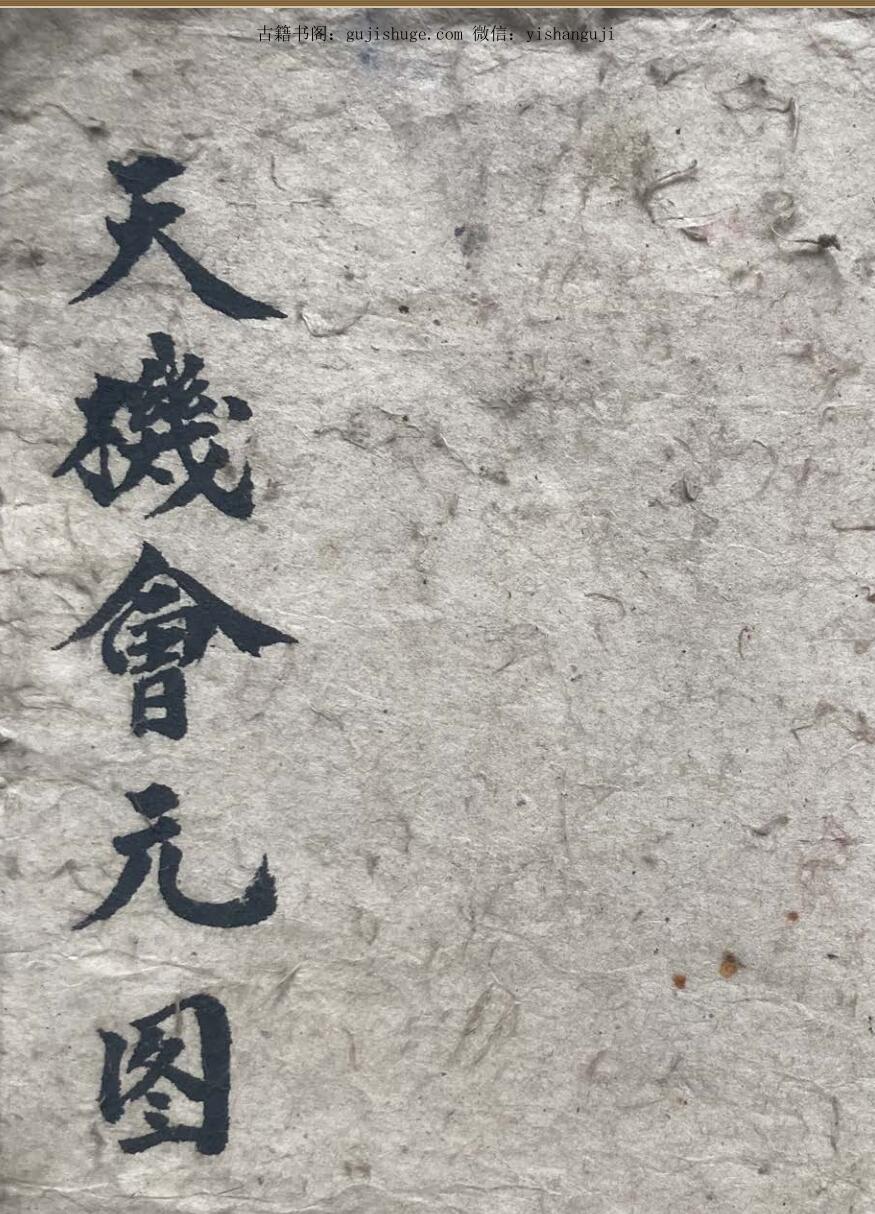 古籍书阁：gujishuge.com 微信：yishanguji
天機會元图